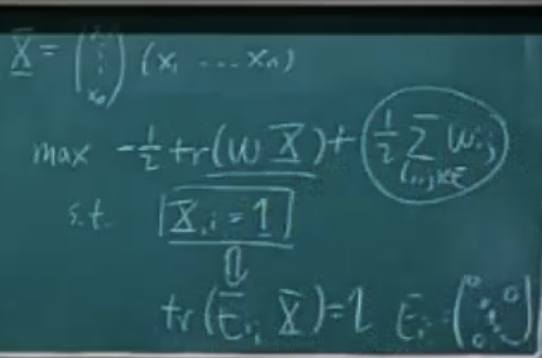 X = (x₁ ⋮ xₙ) (x₁ ... xₙ)
max -½ tr(W X) + ½ Σ_{(i,j)∈E} w_{ij}
s.t. X_{ii} = 1
tr(E_{ii} X) = 1 E_{ii} = (0 ⋱ 1 ⋱ 0)